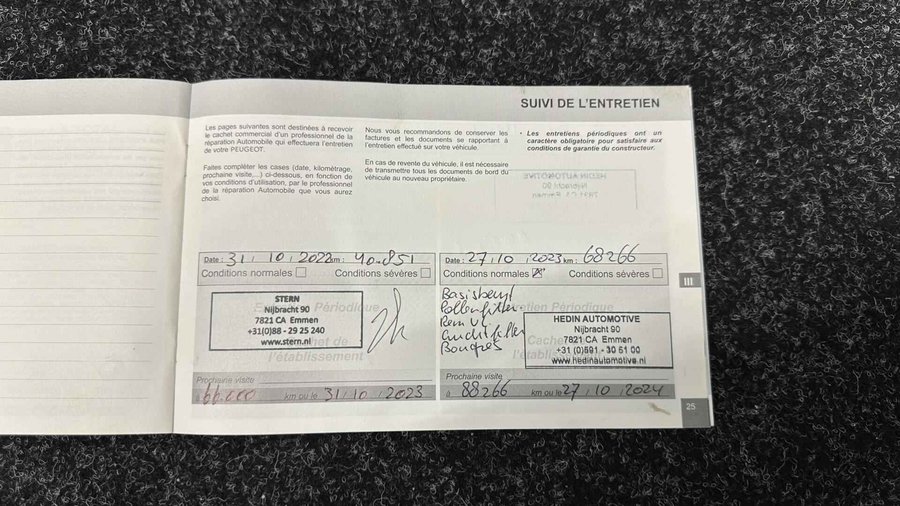 SUIVI DE L'ENTRETIEN
Les pages suivantes sont destinées à recevoir
le cachet commercial d'un professionnel de la
réparation Automobile qui effectuera l'entretien
de votre PEUGEOT.
Faites compléter les cases (date, kilométrage,
prochaine visite,...) ci-dessous, en fonction de
vos conditions d'utilisation, par le professionnel
de la réparation Automobile que vous aurez
choisi.
Nous vous recommandons de conserver les
factures et les documents se rapportant à
l'entretien effectué sur votre véhicule.
En cas de revente du véhicule, il est nécessaire
de transmettre tous les documents de bord du
véhicule au nouveau propriétaire.
• Les entretiens périodiques ont un
caractère obligatoire pour satisfaire aux
conditions de garantie du constructeur.
HEDIN AUTOMOTIVE
Nijbracht 90
7821 CA Emmen
Date : 31 / 10 / 2022 km : 40.851
Conditions normales Conditions sévères
Entretien Périodique
STERN
Nijbracht 90
7821 CA Emmen
+31(0)88 - 29 25 240
www.stern.nl
Cachet de
l'établissement
Prochaine visite
à 66.000 km ou le 31/10/2023
Date : 27/10/2023 km : 68266
Conditions normales Conditions sévères
Entretien Périodique
Basisbeurt
Pollenfilter
Rem Vl.
Luchtfilter
Bougies
HEDIN AUTOMOTIVE
Nijbracht 90
7821 CA Emmen
+31 (0)591 - 30 61 00
www.hedinautomotive.nl
Cachet de
l'établissement
Prochaine visite
à 88266 km ou le 27/10/2024
III
25